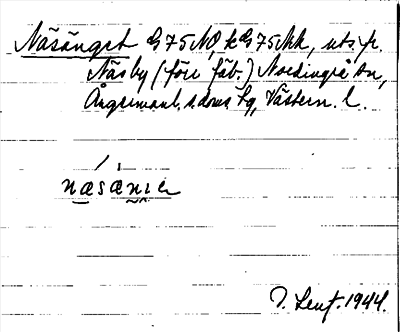 Näsänget G75NO, k G75Nk, uts. fr.
Näsby (förr fäb.) Nordingrå sn,
Ångermanl. s. doms sg, Västern. l.
næsænɩɛ
J. Lenf. 1944.